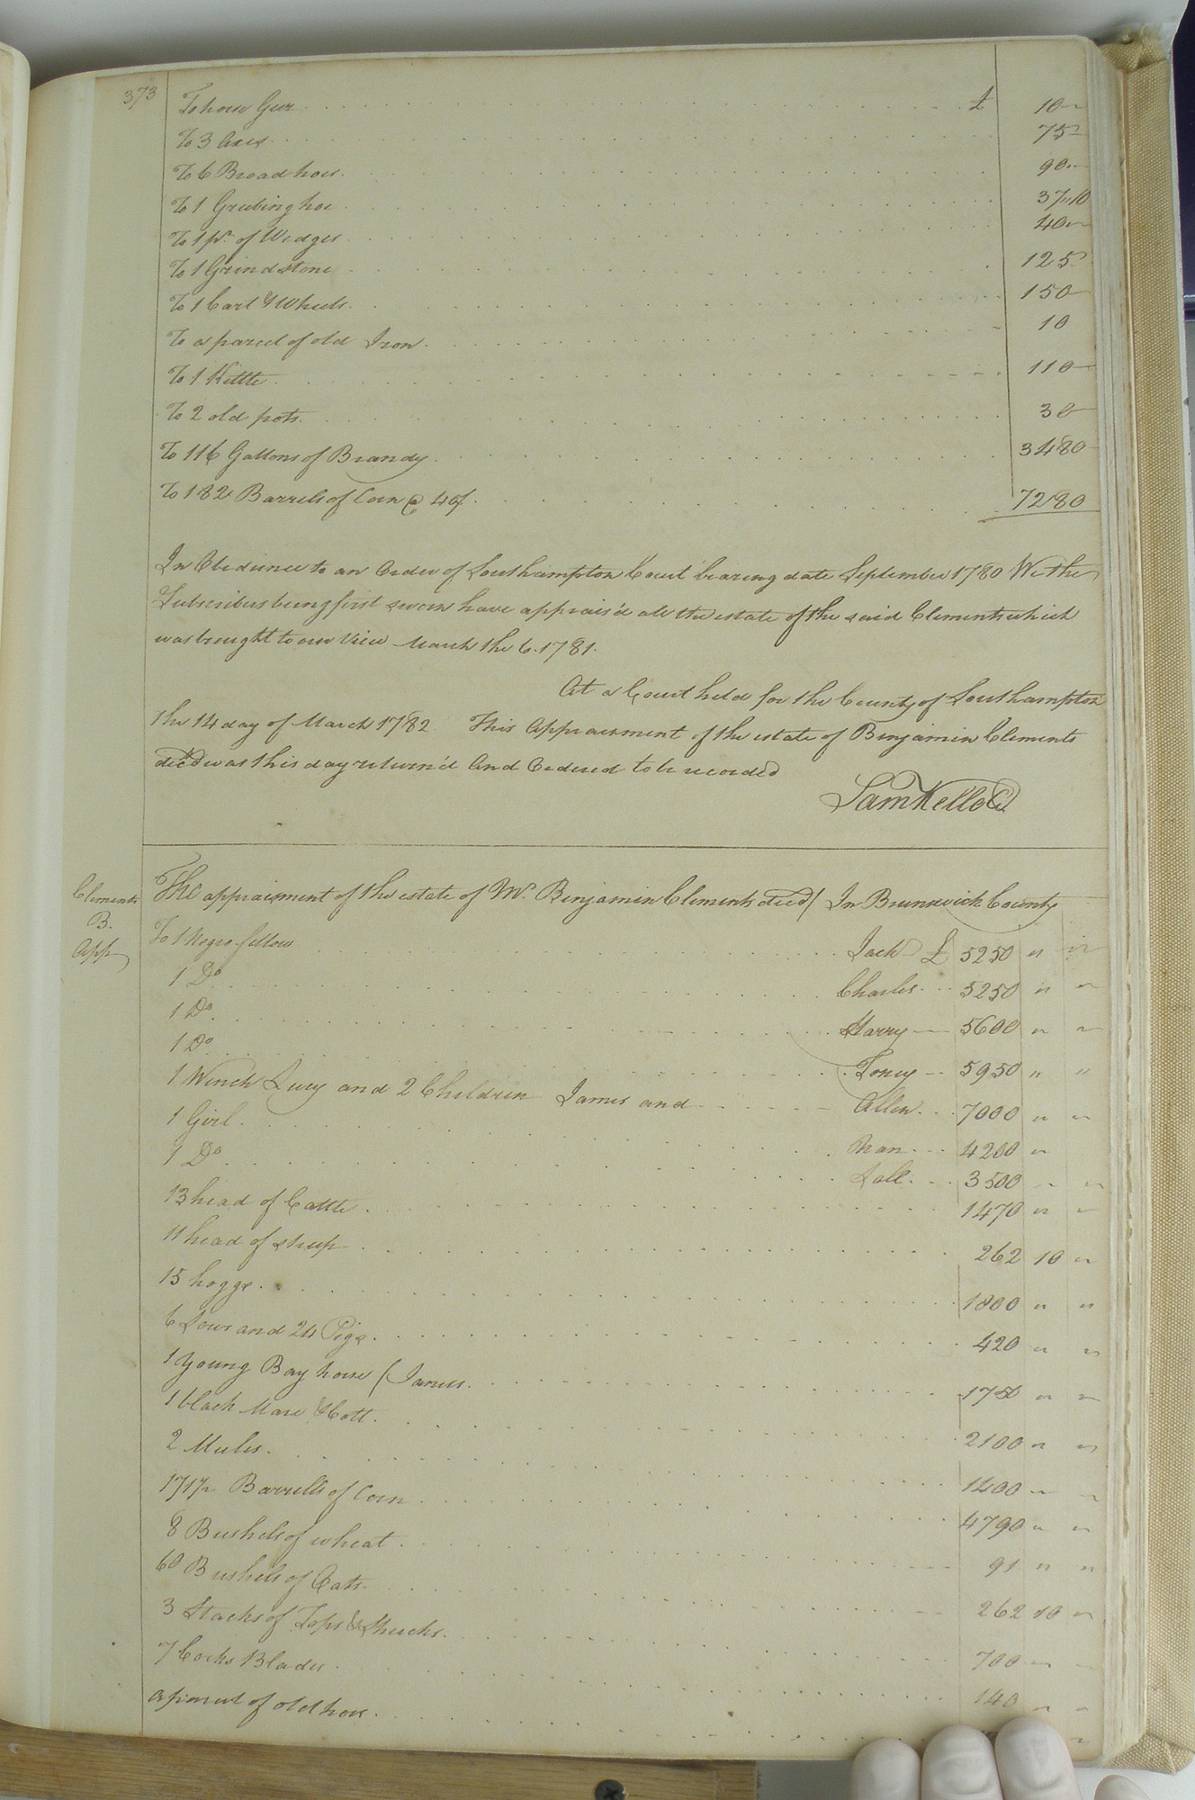 373
To horse Gear £ 10
To 3 Axes 75
To 6 Broad hoes 90
To 1 Grubing hoe 37 10
To 1 pr. of Wedges 40
To 1 Grindstone 125
To 1 Cart & Wheels 150
To a parcel of old Iron 10
To 1 Kettle 110
To 2 old pots 30
To 116 Gallons of Brandy 3480
To 182 Barrels of Corn @ 40/ 7280
In Obedience to an Order of Southampton Court bearing date September 1780 We the
Subscribers being first sworn have apprais'd all the estate of the said Clements which
was brought to our View March the 6. 1781.
At a Court held for the County of Southampton
the 14 day of March 1782 This Appraisment of the estate of Benjamin Clements
dec'd was this day return'd And Ordered to be recorded
Sam Kello
Clements
B.
App
The appraisment of the estate of Mr. Benjamin Clements dec'd / In Brunswick County
To 1 Negro fellow Jack £ 5250 " "
1 Do Charles 5250 " "
1 Do Harry 5600 " "
1 Do Toney 5950 " "
1 Wench Lucy and 2 Children James and Allen 7000 " "
1 Girl Nan 4200 "
1 Do Sall 3500 " "
13 head of Cattle 1470 " "
11 head of sheep 262 10 "
15 hoggs 1800 " "
6 Sows and 24 Pigs 420 " "
1 young Bay horse (James 1750 " "
1 black Mare & Colt 2100 " "
2 Mules 1400 " "
171 1/2 Barrells of Corn 4790 " "
8 Bushels of wheat 91 " "
60 Bushels of Oats 262 10 "
3 Stacks of Tops & Shucks 700 " "
7 Cocks Blades 140 " "
a parcel of old hoes